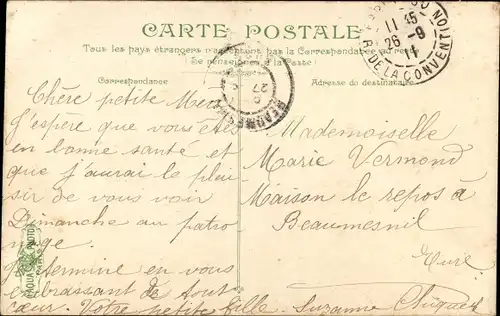 CARTE POSTALE
Tous les pays étrangers n'acceptent pas la Correspondance au recto
(Se renseigner à la Poste)
Correspondance
Adresse du destinataire
11 45
26 - 9
11
R. DE LA CONVENTION
27
BEAUMESNIL
Chère petite Mère
J'espère que vous êtes
en bonne santé et
que j'aurai le plai
sir de vous voir
Dimanche au patro
nage.
Je termine en vous
embrassant de tout
cœur. Votre petite fille. Suzanne
Mademoiselle
Marie Vermond
Maison le repos à
Beaumesnil
Eure.